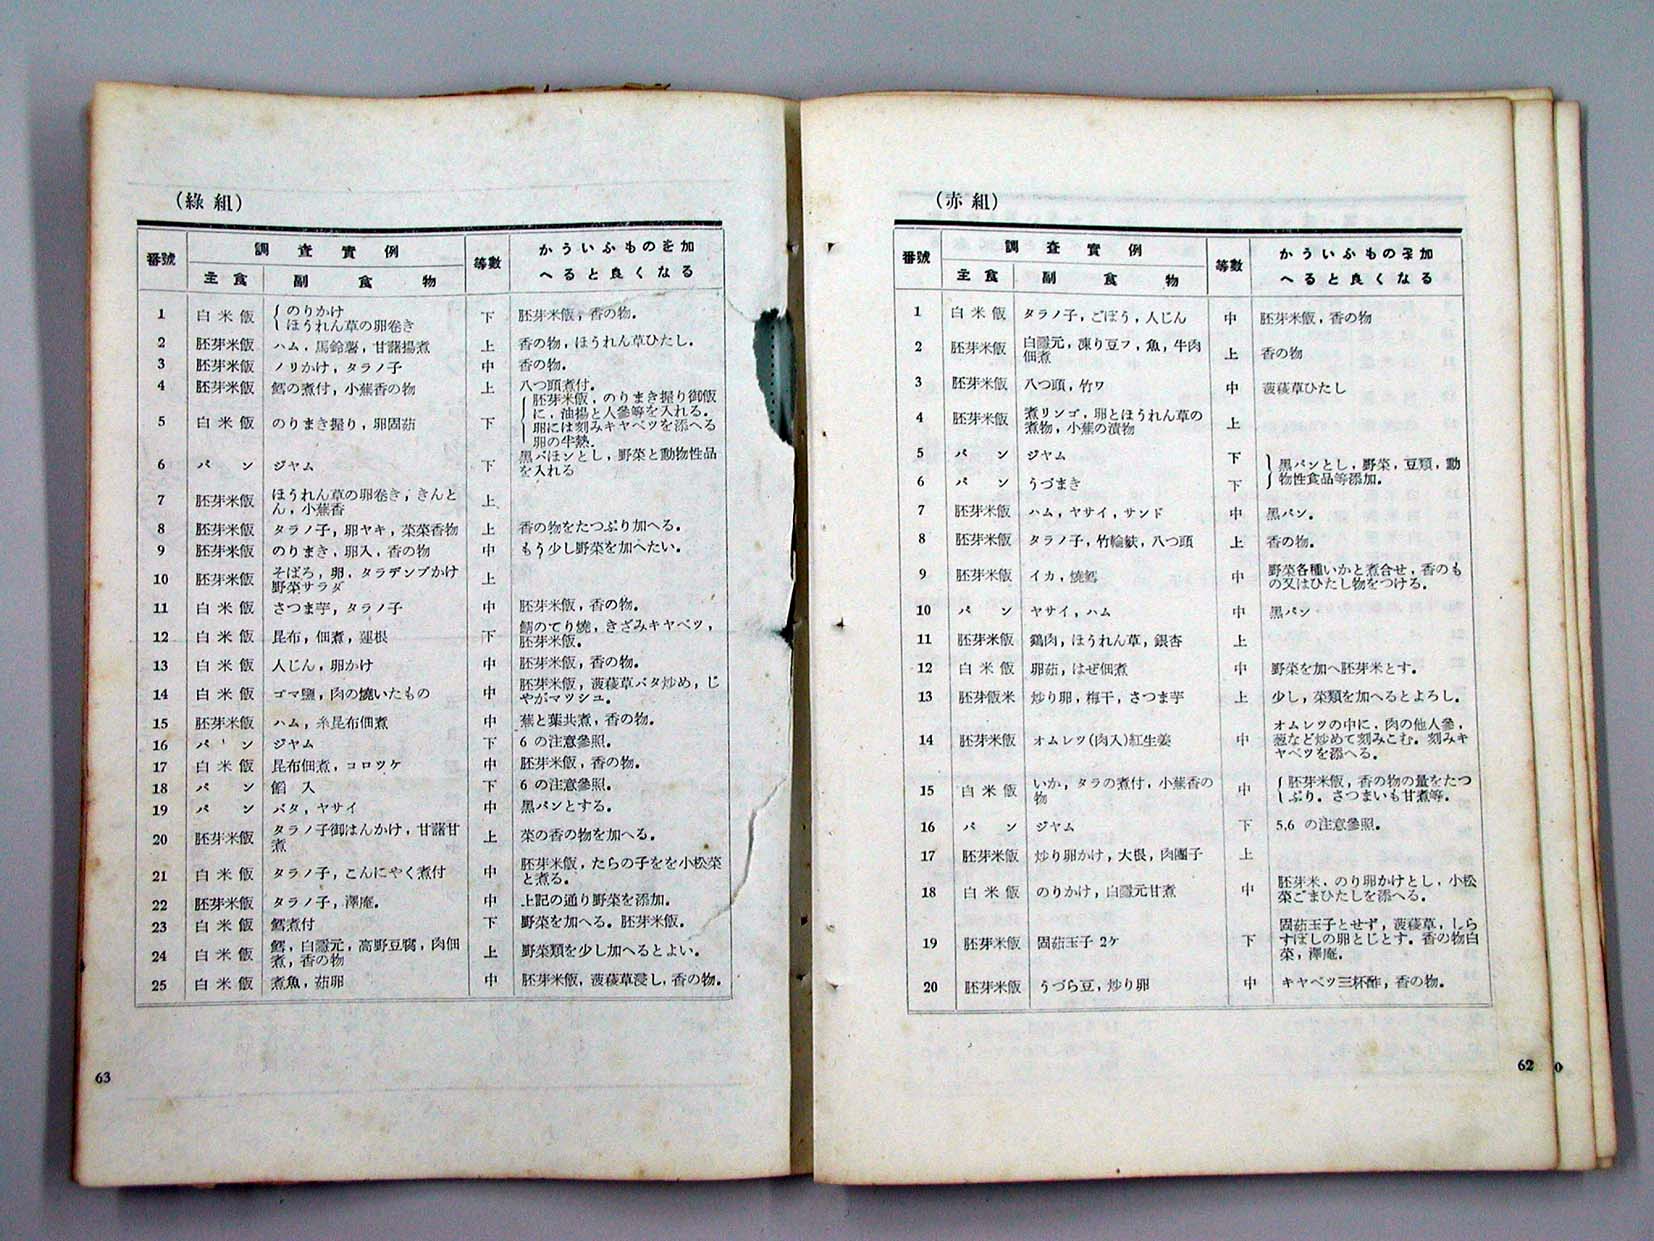 (綠組)
番號 調查實例 等數 かういふものを加
主食 副食物 へると良くなる
1 白米飯 のりかけ 下 胚芽米飯，香の物。
ほうれん草の卵卷き
2 胚芽米飯 ハム，馬鈴薯，甘藷揚煮 上 香の物，ほうれん草ひたし。
3 胚芽米飯 ノリかけ，タラノ子 中 香の物。
4 胚芽米飯 鱈の煮付，小蕪香の物 上 八つ頭煮付。
5 白米飯 のりまき握り，卵固茹 下 胚芽米飯，のりまき握り御飯
に，油揚と人參等を入れる。
卵には刻みキャベツを添へる
卵の半熱。
6 パン ジヤム 下 黒パほンとし，野菜と動物性品
を入れる
7 胚芽米飯 ほうれん草の卵卷き，きんと 上
ん，小蕪香
8 胚芽米飯 タラノ子，卵ヤキ，菜菜香物 上 香の物をたつぷり加へる。
9 胚芽米飯 のりまき，卵入，香の物 中 もう少し野菜を加へたい。
10 胚芽米飯 そぼろ，卵，タラデンブかけ 上
野菜サラダ
11 白米飯 さつま芋，タラノ子 中 胚芽米飯，香の物。
12 白米飯 昆布，佃煮，蓮根 下 鯖のてり燒，きざみキヤベツ，
胚芽米飯。
13 白米飯 人じん，卵かけ 中 胚芽米飯，香の物。
14 白米飯 ゴマ鹽，肉の燒いたもの 中 胚芽米飯，菠薐草バタ炒め，じ
やがマツシユ。
15 胚芽米飯 ハム，糸昆布佃煮 中 蕪と葉共煮，香の物。
16 パン ジヤム 下 6 の注意參照。
17 白米飯 昆布佃煮，コロツケ 中 胚芽米飯，香の物。
18 パン 餡入 下 6 の注意參照。
19 パン バタ，ヤサイ 中 黒パンとする。
20 胚芽米飯 タラノ子御はんかけ，甘藷甘 上 菜の香の物を加へる。
煮
21 白米飯 タラノ子，こんにやく煮付 中 胚芽米飯，たらの子をを小松菜
と煮る。
22 胚芽米飯 タラノ子，澤庵。 中 上記の通り野菜を添加。
23 白米飯 鱈煮付 下 野菜を加へる。胚芽米飯。
24 白米飯 鱈，白隱元，高野豆腐，肉佃 上 野菜類を少し加へるとよい。
煮，香の物
25 白米飯 煮魚，茹卵 中 胚芽米飯，菠薐草浸し，香の物。
63
(赤組)
番號 調查實例 等數 かういふものを加
主食 副食物 へると良くなる
1 白米飯 タラノ子，ごぼう，人じん 中 胚芽米飯，香の物
2 胚芽米飯 白隱元，凍り豆フ，魚，牛肉 上 香の物
佃煮
3 胚芽米飯 八つ頭，竹ワ 中 菠薐草ひたし
4 胚芽米飯 煮リンゴ，卵とほうれん草の 上
煮物，小蕪の漬物
5 パン ジヤム 下 黒パンとし，野菜，豆類，動
6 パン うづまき 下 物性食品等添加。
7 胚芽米飯 ハム，ヤサイ，サンド 中 黒パン。
8 胚芽米飯 タラノ子，竹輪麩，八つ頭 上 香の物。
9 胚芽米飯 イカ，燒鱈 中 野菜各種いかと煮合せ，香のも
の又はひたし物をつける。
10 パン ヤサイ，ハム 中 黒パン
11 胚芽米飯 鶏肉，ほうれん草，銀杏 上
12 白米飯 卵茹，はぜ佃煮 中 野菜を加へ胚芽米とす。
13 胚芽飯米 炒り卵，梅干，さつま芋 上 少し，菜類を加へるとよろし。
14 胚芽米飯 オムレツ(肉入)紅生姜 中 オムレツの中に，肉の他人參，
葱など炒めて刻みこむ。刻みキ
ヤベツを添へる。
15 白米飯 いか，タラの煮付，小蕪香の 中 胚芽米飯，香の物の量をたつ
物 ぷり。さつまいも甘煮等。
16 パン ジヤム 下 5,6 の注意參照。
17 胚芽米飯 炒り卵かけ，大根，肉團子 上
18 白米飯 のりかけ，白隱元甘煮 中 胚芽米，のり卵かけとし，小松
菜ごまひたしを添へる。
19 胚芽米飯 固茹玉子 2ケ 下 固茹玉子とせず，菠薐草，しら
すぼしの卵とじとす。香の物白
菜，澤庵。
20 胚芽米飯 うづら豆，炒り卵 中 キヤベツ三杯酢，香の物。
62
0